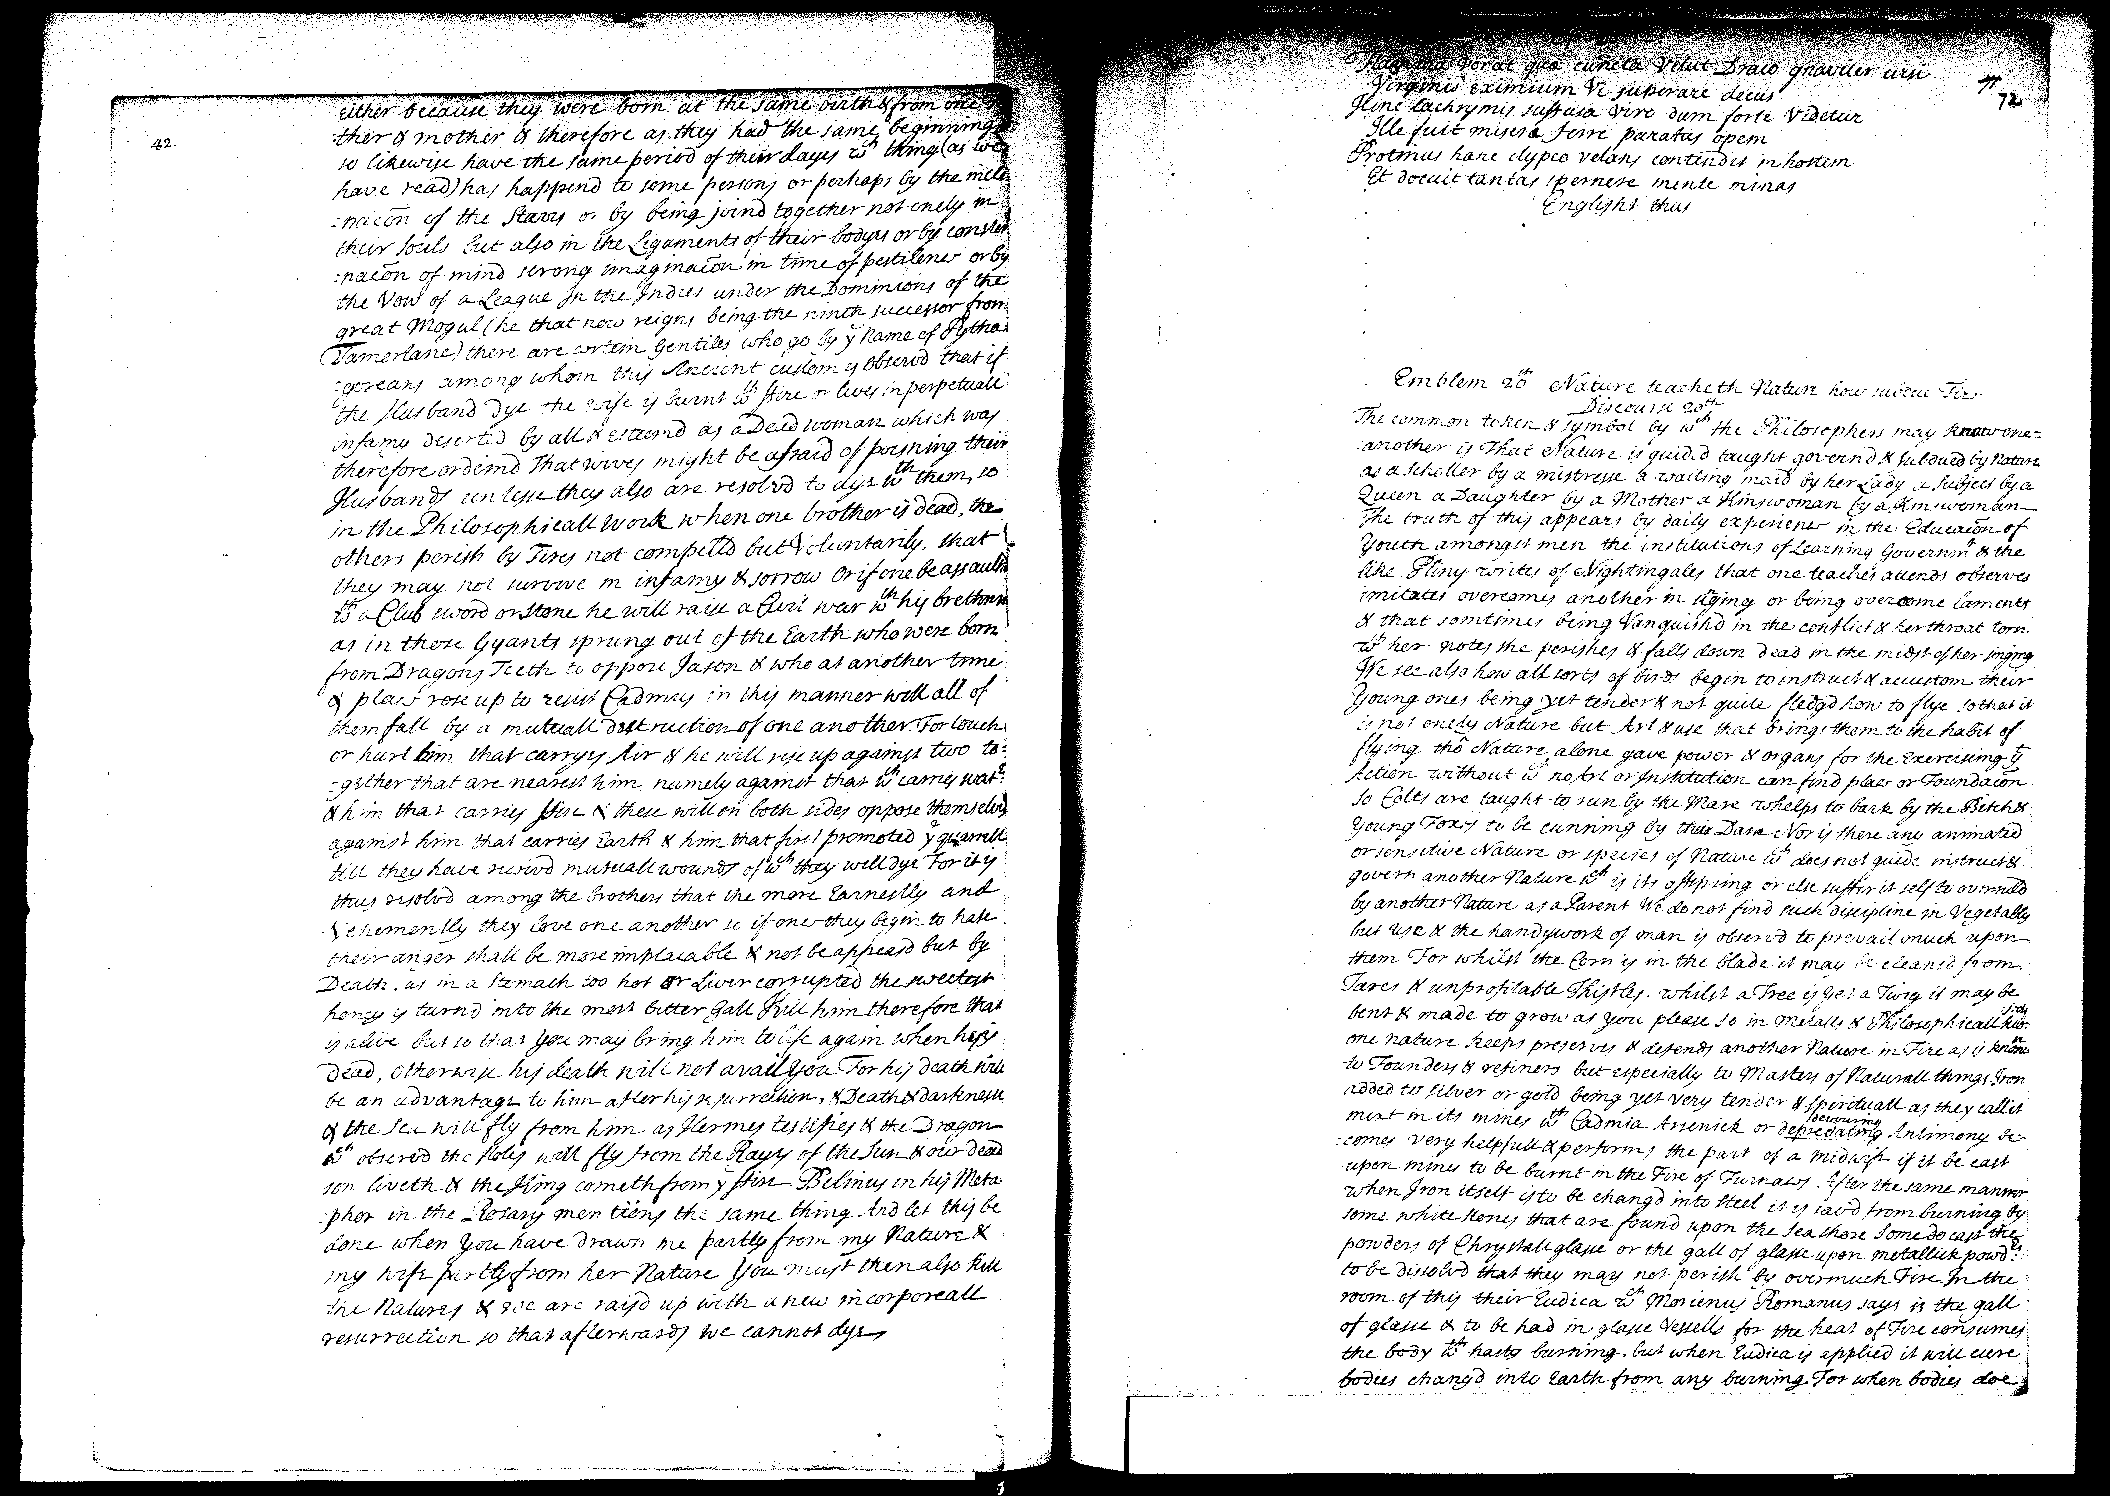 42
either because they were born at the same birth & from one
ther & mother & therefore as they had the same beginnings
so likewise have the same period of their dayes wch thing (as we
have read) has happend to some persons or perhaps by the incli
:nacōn of the Starrs or by being joind together not onely in
their souls but also in the Ligaments of their bodyes or by conster
:nacōn of mind strong imaginacōn in time of pestilence or by
the Vow of a League In the Indies under the Dominions of the
great Mogul (he that now reigns being the ninth successor from
Tamerlane) there are certein Gentiles who go by ye Name of Pytha:
:goreans among whom this Ancient custom is observd that if
the Husband Dye the wife is burnt wth fire or lives in perpetuall
infamy deserted by all & esteemd as a Dead woman which was
therefore ordeind That wives might be afraid of poysning their
Husbands unlesse they also are resolvd to dye wth them, so
in the Philosophicall Work when one brother is dead, the
others perish by Fires not compelld but Voluntarily, that
they may not survive in infamy & sorrow Or if one be assaulted
wth a Club sword or stone he will raise a Civil war wth his brethren
as in those Gyants sprung out of the Earth who were born
from Dragons Teeth to oppose Jason & who at another time
& place rose up to resist Cadmus in this manner will all of
them fall by a mutuall destruction of one another. For touch
or hurt him that carryes Air & he will rise up against two to:
:gether that are nearest him, namely against that wch carries watr
& him that carries fire & these will on both sides oppose themselves
against him that carries Earth & him that first promoted ye quarrell
till they have receivd mutuall wounds of wch they will dye For it is
thus resolvd among the brothers that the more Earnestly and
Vehemently they love one another so if once they begin to hate
their anger shall be more implacable & not be appeasd but by
Death, as in a stomach too hot or Liver corrupted the sweetest
honey is turnd into the most bitter Gall Kill him therefore that
is alive but so that you may bring him to life again when he is
Dead, otherwise his death will not avail you For his death will
be an advantage to him after his resurrection, & Death & darknesse
& the Sea will fly from him as Hermes testifies & the Dragon
wch observd the Holes will fly from the Rayes of the Sun & our dead
son liveth & the King cometh from ye fire Belinus in his Meta
:phor in the Rosary mentions the same thing And let this be
done when you have drawn me partly from my Nature &
my wife partly from her Nature You must then also kill
the Natures & we are raisd up with a new incorporeall
resurrection so that afterwards we cannot dye
77
72
vorat quae cuncta velut Draco graviter ursi
Virginis eximium Vi superare decus
Hinc lachrymis suffusa viro dum forte videtur
Ille fuit miserae ferre paratus opem
Protinus hanc clypeo velans contendit in hostem
Et docuit tantas spernere mente minas
Englisht thus
Emblem 20th Nature teacheth Nature how subdue Fire
Discourse 20th
The common token & symbol by wch the Philosophers may know one=
another is That Nature is guided taught governd & subdued by Nature
as a scholler by a mistresse a waiting maid by her Lady a subject by a
Queen a Daughter by a Mother a Kinswoman by a Kinswoman
The truth of this appears by daily experience in the Educacōn of
Youth amongst men the institutions of Learning Governmt & the
like Pliny writes of Nightingales that one teaches attends observes
imitates overcomes another in singing or being overcome laments
& that somtimes being Vanquishd in the conflict & her throat torn
wth her notes she perishes & falls down dead in the midst of her singing
We see also how all sorts of birds begin to instruct & accustom their
Young ones being yet tender & not quite fledg'd how to flye so that it
is not onely Nature but Art & use that brings them to the habit of
flying thō Nature alone gave power & organs for the Exercising yt
Action without wch no Art or Institution can find place or Foundacōn
So Colts are taught to run by the Mare whelps to bark by the Bitch &
Young Foxes to be cunning by their Dam Nor is there any animated
or sensitive Nature or species of Nature wch does not guide instruct &
govern another Nature wch is its offspring or else suffer it self to overruld
by another Nature as a Parent We do not find such discipline in Vegetables
but use & the handywork of man is observd to prevail much upon
them For whilst the Corn is in the blade it may be cleansd from
Tares & unprofitable Thistles. whilst a Tree is yet a Twig it may be
bent & made to grow as you please So in Metalls & Philosophicall
one nature keeps preserves & defends another Nature in Fire as is known
to Founders & refiners but especially to Masters of Naturall things Iron
added to silver or gold being yet very tender & spirituall as they call it
mixt in its mines wth Cadmia Arsenick or depredating devouring Antimony be
:comes very helpfull & performs the part of a midwife if it be cast
upon mines to be burnt in the Fire of Furnaces After the same manner
when Iron itself is to be changd into Steel it is savd from burning by
some white stones that are found upon the Sea shore Some do cast the
powders of Chrystall glasse or the gall of glasse upon metallick powdrs
to be dissolvd that they may not perish by overmuch Fire In the
room of this their Eudica wch Morienus Romanus says is the gall
of glasse & to be had in glasse Vessells for the heat of Fire consumes
the body wth hasty burning. but when Eudica is applied it will cure
bodies changd into Earth from any burning. For when bodies doe